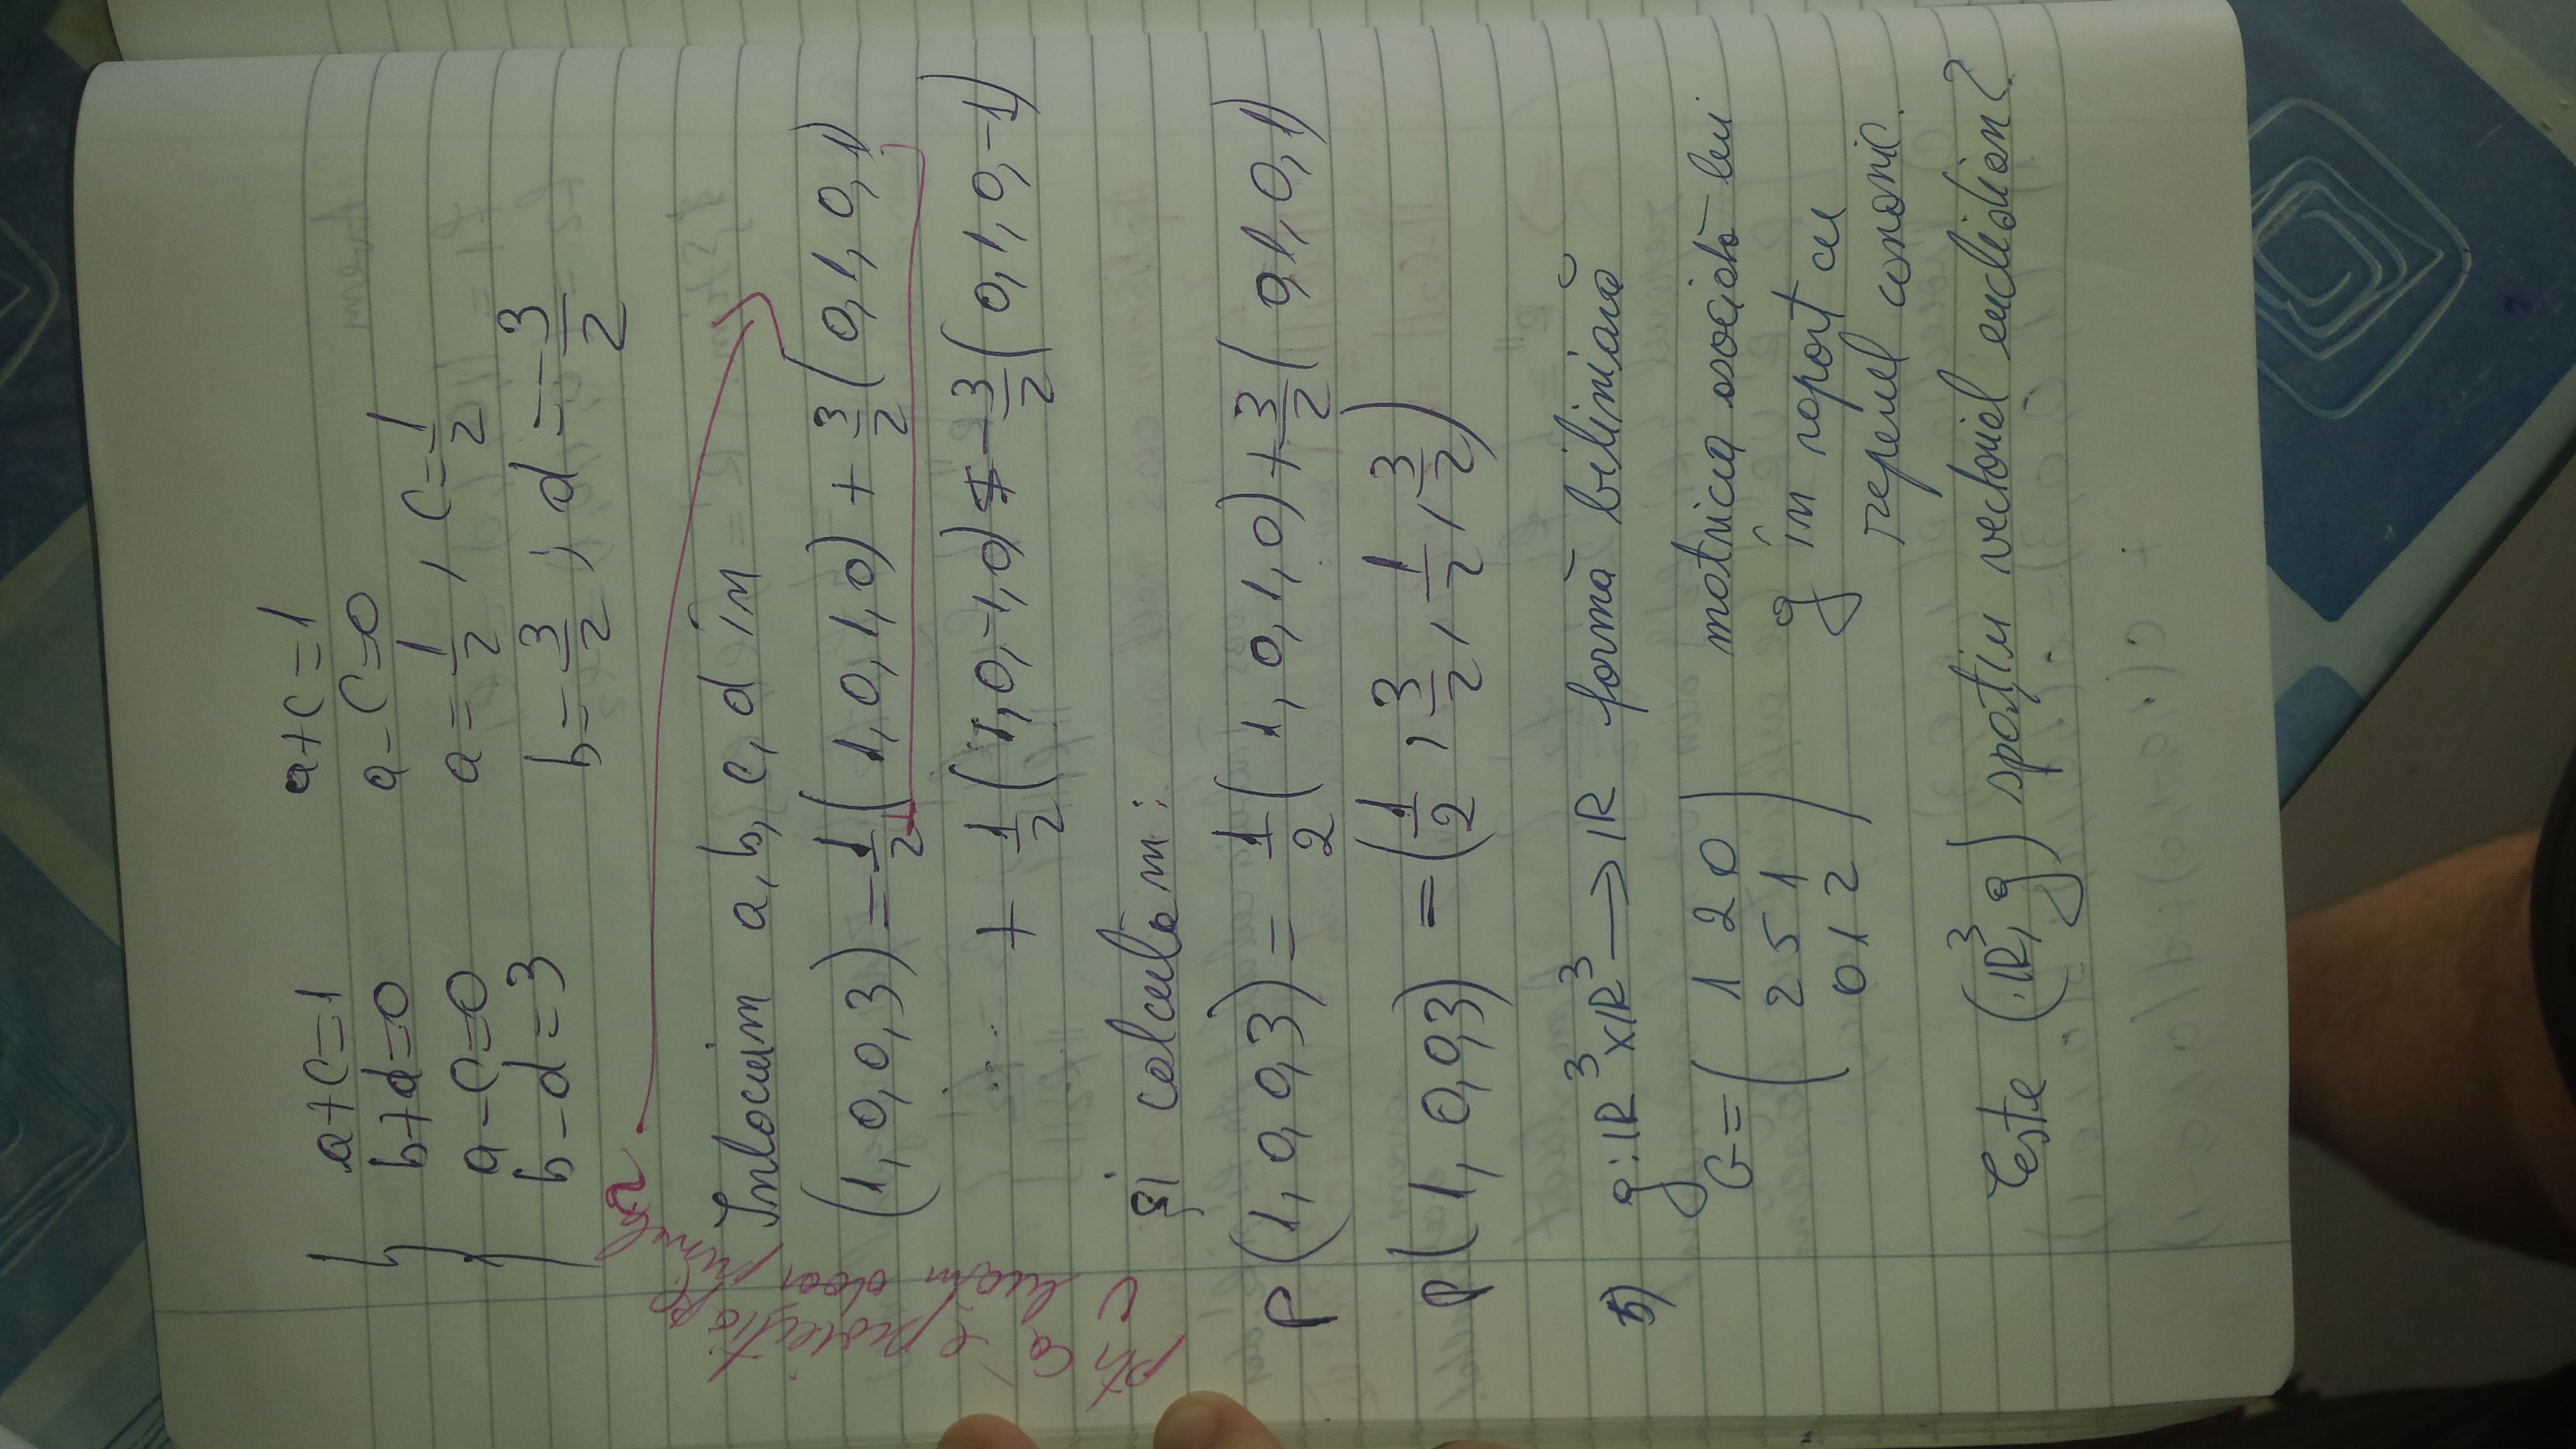 a+c=1
b+d=0
a-c=0
b-d=3
a+c=1
a-c=0
a=1/2, c=1/2
b=3/2; d=-3/2
pth că e proiecția pe
U luăm doar primele 2
Inlocuim a, b, c, d în
(1, 0, 0, 3) = 1/2 (1, 0, 1, 0) + 3/2 (0, 1, 0, 1)
+ 1/2 (1, 0, -1, 0) - 3/2 (0, 1, 0, -1)
și calculăm:
p(1, 0, 0, 3) = 1/2 (1, 0, 1, 0) + 3/2 (0, 1, 0, 1)
p(1, 0, 0, 3) = (1/2, 3/2, 1/2, 3/2)
5) g: IR³ x IR³ → IR formă biliniară
G = ( 1 2 0
2 5 1
0 1 2 )
matricea asociată lui
g în raport cu
reperul canonic.
Este (IR³, g) spațiu vectorial euclidian?